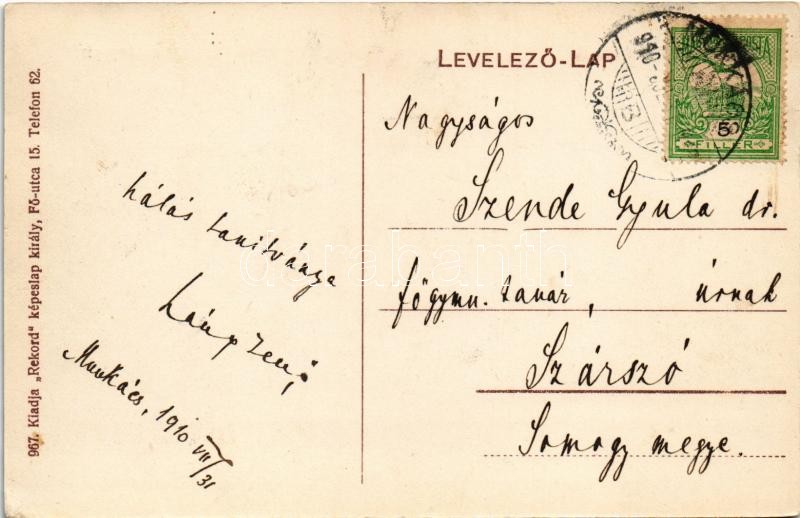 967. Kiadja „Rekord" képeslap király, Fő-utca 15. Telefon 62.
hálás tanitványa
Láng Jenő
Munkács, 1910 VII/31
LEVELEZŐ-LAP
MUNKÁCS
910
5
FILLÉR
Nagyságos
Szende Gyula dr.
főgymn. tanár, úrnak
Szárszó
Somogy megye.
darabanth